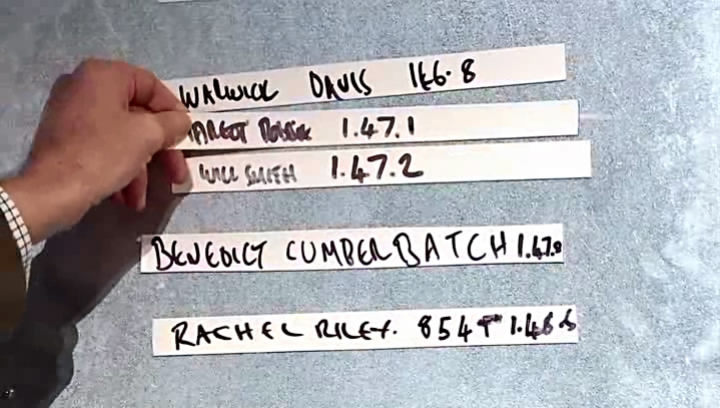 WARWICK DAVIS 1.46.8
1.47.1
WILL SMITH 1.47.2
BENEDICT CUMBERBATCH 1.47.8
RACHEL RILEY. 854TH 1.48